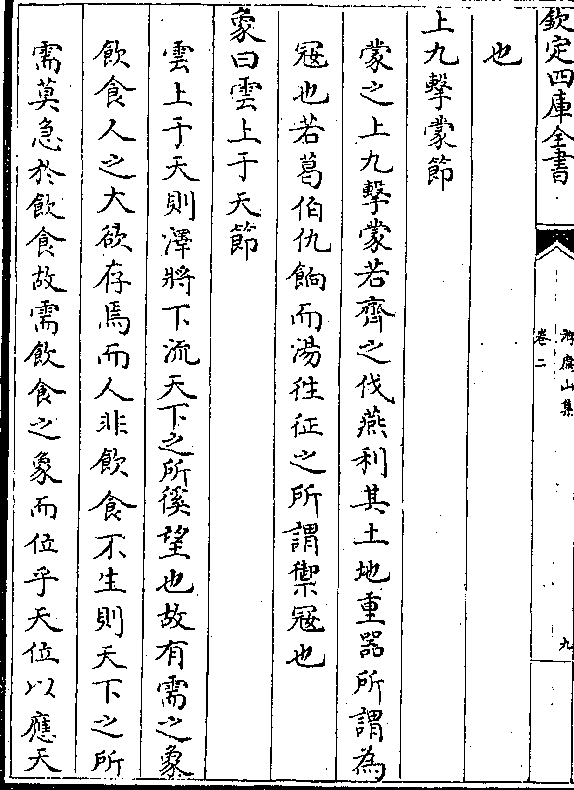 欽定四庫全書
游廌山集
卷二
九
也
上九擊蒙節
蒙之上九擊蒙若齊之伐燕利其土地重器所謂為
宼也若葛伯仇餉而湯徃征之所謂禦宼也
象曰雲上于天節
雲上于天則澤將下流天下之所徯望也故有需之象
飲食人之大欲存焉而人非飲食不生則天下之所
需莫急於飲食故需飲食之象而位乎天位以應天